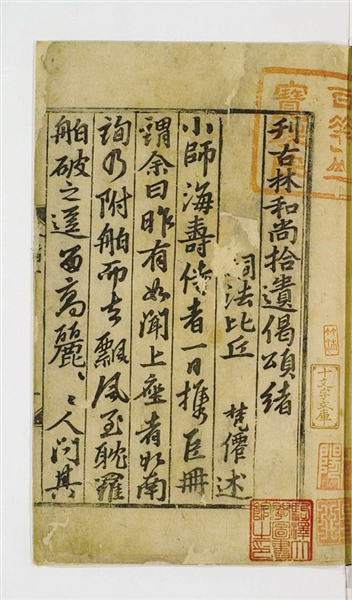 刊古林和尚拾遺偈頌緒
嗣法比丘 梵僊 述
小師海壽侍者一日攜巨冊
謂余曰昨有如聞上座者南
詢乃附舶而去飄風至耽羅
舶破之留高麗〻人問其
駒澤大學圖書館之印